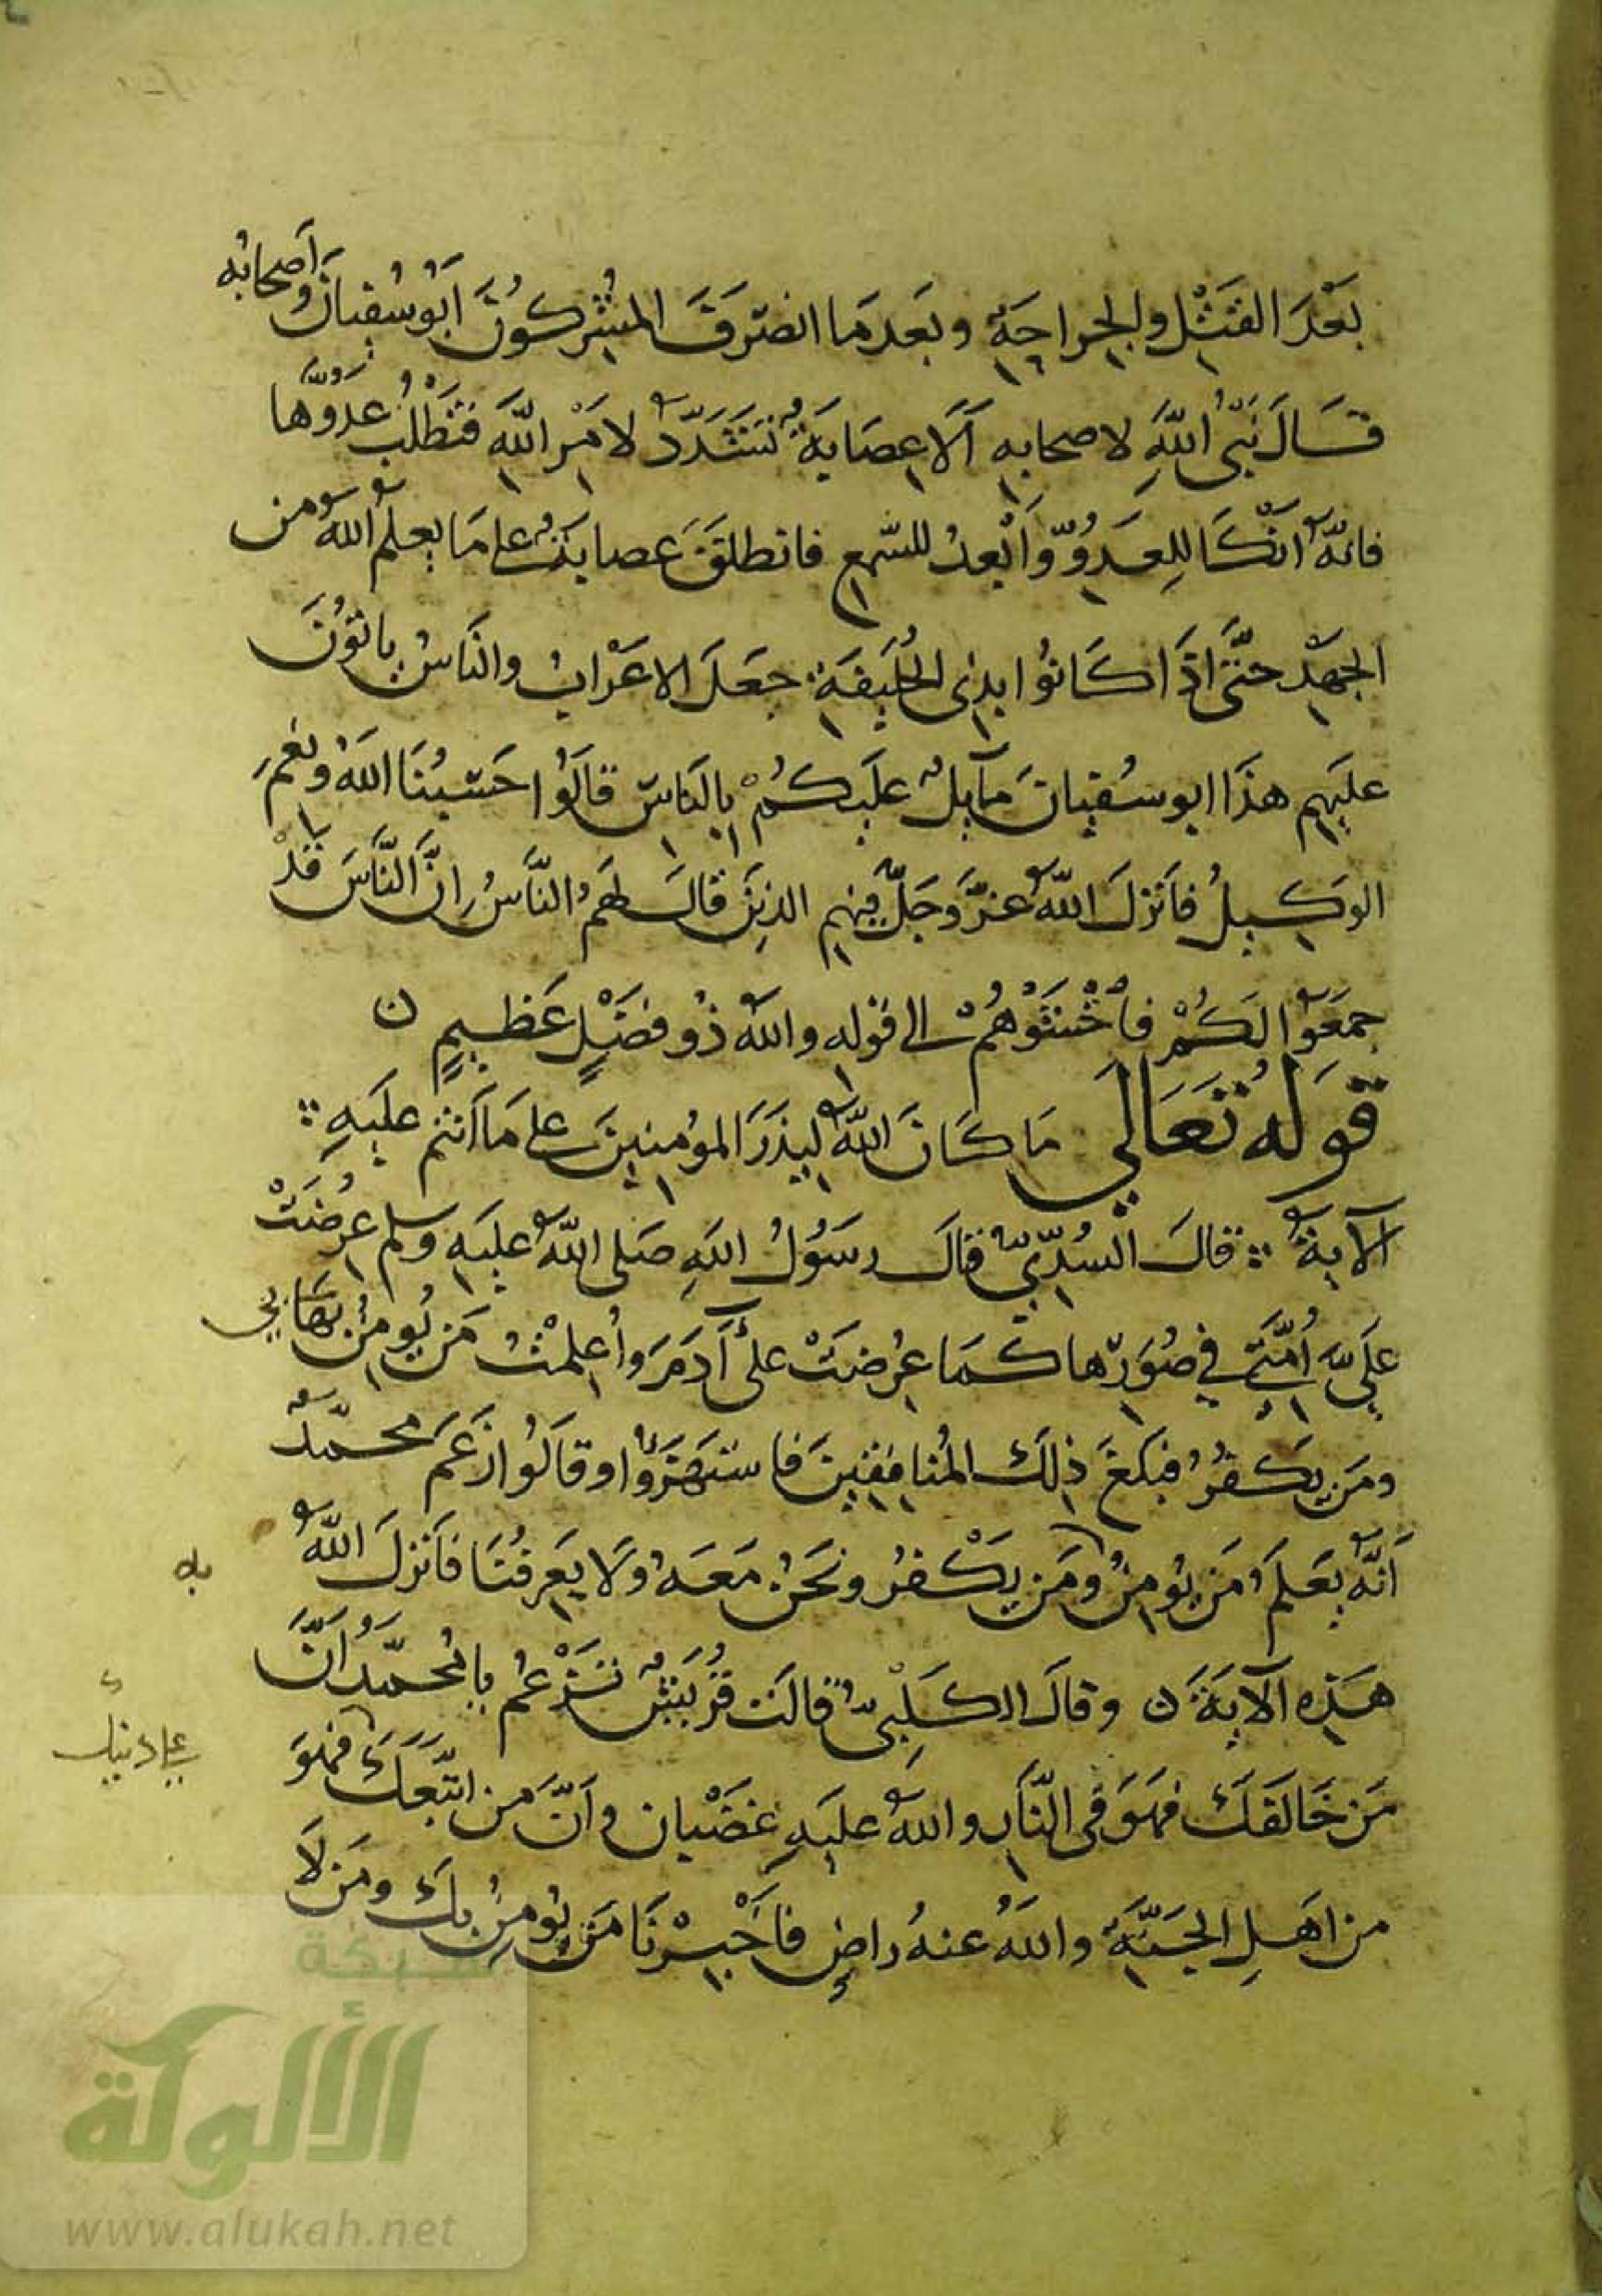 بَعْدَ القَتْلِ والجِراحَةِ وبَعدَما انصَرَفَ المُشْرِكُونَ أَبُو سُفيانَ وأصحابُه
قَالَ نَبيُّ اللَّهِ لاصحابِهِ أَلَا عِصَابَةٌ تَشَدَّدُ لامْرِ اللَّهِ فتَطْلُبُ عَدُوَّها
فانَّهُ انْكَا لِلعَدُوِّ وَأَبْعدُ للسَّمعِ فانطلقَ عِصابَةٌ على مَا يَعلَمُ اللَّهُ من
الجَهْدِ حَتَّى اذَا كَانُوا بذِى الحُلَيفَةِ جَعَلَ الاعْرَابُ والنَاسُ يأتُونَ
عَلَيهِم هذَا ابو سُفيانَ مَآيِلٌ عَلَيكُمْ بالنَاسِ قالَوُا حَسْبُنَا اللهُ ونِعْمَ
الوَكِيلُ فأَنزلَ اللَّهُ عَزَّ وَجَلَّ فِيهِم الذِينَ قالَ لَهُمُ النَّاسُ انَّ النَّاسَ قَدْ
جَمَعُوا لَكُمْ فاخْشَوْهُمْ الى قوله واللهُ ذُو فضْلٍ عَظيمٍ ن
قَولُهُ تَعَالي مَا كَانَ اللَّهُ ليذَرَ المؤمِنِينَ على مَا أنتم عليَهِ
الآية قالَ السُدِّيُّ قالَ رسَوُلُ اللَهِ صَلى اللَّهُ عليَهِ وسلم عُرِضَتْ
عَلَيَّ أُمَّتِي في صُوَرِها كَما عُرِضَتْ على آدَمَ وأُعلِمْتُ مَن يُومِنُ بي
ومَن يَكفُرُ فبَلَغَ ذلِكَ المُنافِقِينَ فاستَهزَؤُا وقَالَوُا زَعَمَ محمّدٌ
أنَّهُ يَعلَمُ مَن يُومِنُ به ومَن يَكْفُرُ ونحَنُ مَعَهُ ولَا يعَرِفُنَا فأَنزلَ اللَّهُ
هَذِهِ الآيَةَ ن وقالَ الكَلْبيُّ قالَت قُرَيشٌ تَزْعُمُ يا مُحمّدُ أنَّ
مَن خَالَفَكَ فهُوَ في النَّارِ واللهُ عليَهِ غَضْبان وأنَّ مَن اتَّبَعَكَ على دينك فهُوَ
من اهَلِ الجَنَّةِ واللهُ عنهُ راضٍ فأَخْبِرْنَا مَن يُومِنُ بكَ ومَن لَا
شبكة
الألوكة
www.alukah.net